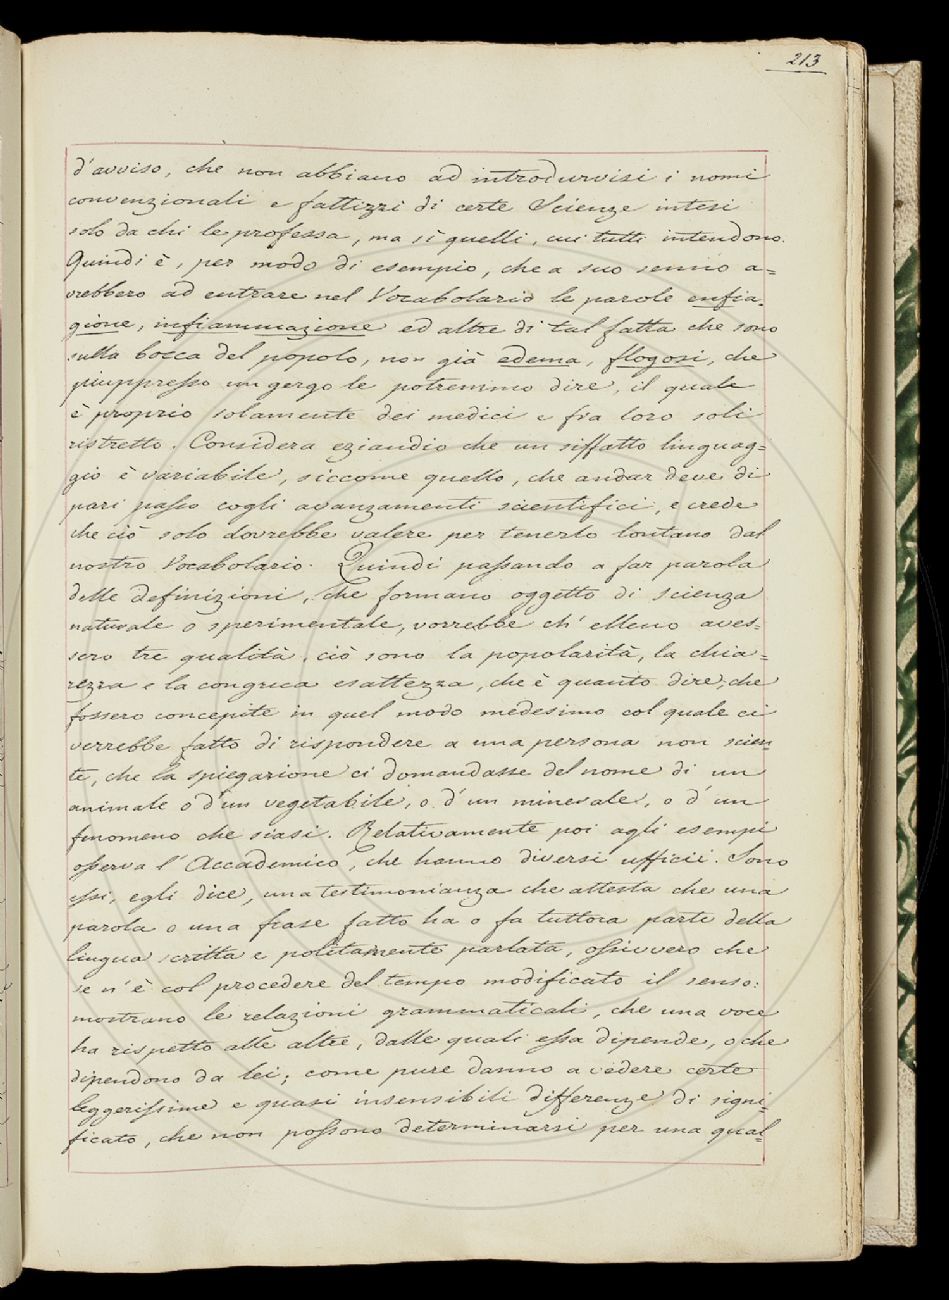 213
d'avviso, che non abbiano ad introdurvisi i nomi
convenzionali e fattizzi di certe Scienze intesi
solo da chi le professa, ma sì quelli, cui tutti intendono.
Quindi è, per modo di esempio, che a suo senno a=
vrebbero ad entrare nel Vocabolario le parole enfia=
gione, infiammazione ed altre di tal fatta che sono
sulla bocca del popolo, non già edema, flogosi, che
piuppresso un gergo le potremmo dire, il quale
è proprio solamente dei medici e fra loro soli
ristretto. Considera eziandio che un siffatto linguag=
gio è variabile, siccome quello, che andar deve di
pari passo cogli avanzamenti scientifici, e crede
che ciò solo dovrebbe valere per tenerlo lontano dal
nostro Vocabolario. Quindi passando a far parola
delle definizioni, che formano oggetto di scienza
naturale o sperimentale, vorrebbe ch'elleno aves=
sero tre qualità, ciò sono la popolarità, la chia=
rezza e la congrua esattezza, che è quanto dire, che
fossero concepite in quel modo medesimo col quale ci
verrebbe fatto di rispondere a una persona non scien=
te, che la spiegazione ci domandasse del nome di un
animale o d'un vegetabile, o d'un minerale, o d'un
fenomeno che siasi. Relativamente poi agli esempi
osserva l'Accademico, che hanno diversi ufficii. Sono
essi, egli dice, una testimonianza che attesta che una
parola o una frase fatto ha o fa tuttora parte della
lingua scritta e politamente parlata, ossivvero che
se n'è col procedere del tempo modificato il senso:
mostrano le relazioni grammaticali, che una voce
ha rispetto alle altre, dalle quali essa dipende, o che
dipendono da lei; come pure danno a vedere certe
leggerissime e quasi insensibili differenze di signi=
ficato, che non possono determinarsi per una qual=